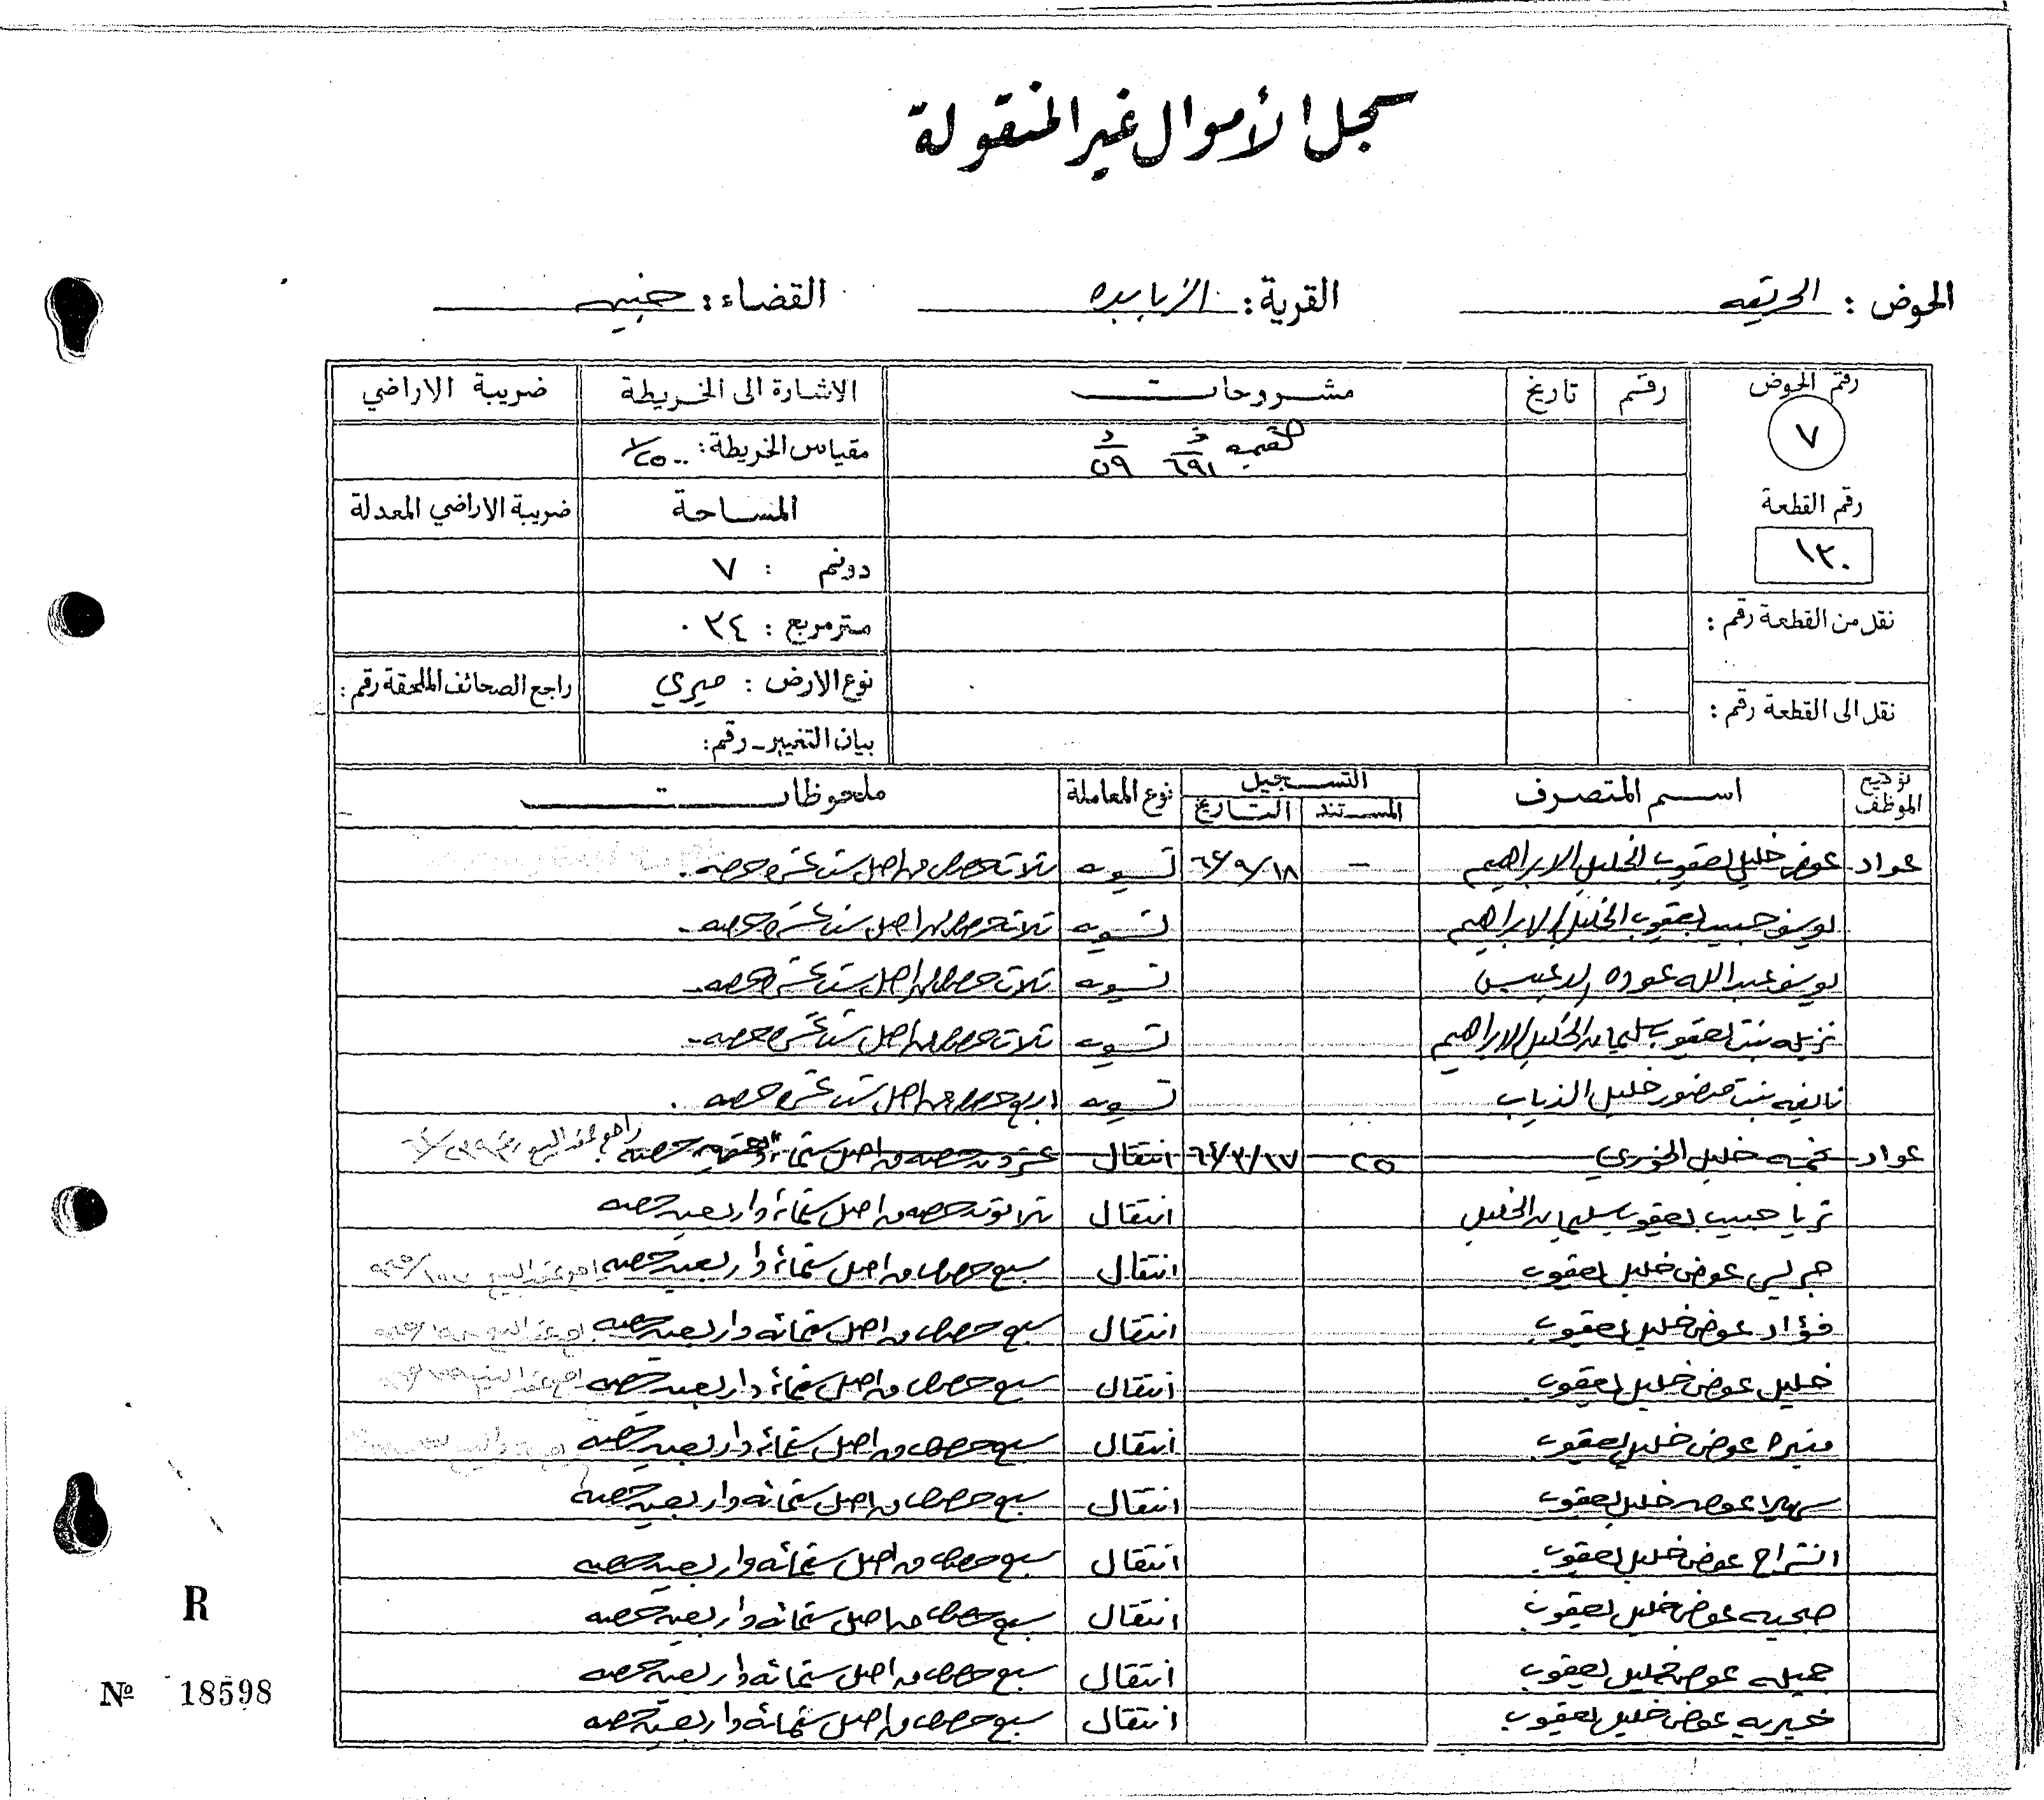 سجل الأموال غير المنقولة
الحوض : الحريقه القرية : الزبابده القضاء : جنين
رقم الحوض رقم تاريخ مشروحات الاشارة الى الخريطة ضريبة الاراضي
٧ مقياس الخريطة : ١/٢٥٠٠
القيمة ف ٦٩١ د ٥٩
رقم القطعة المساحة ضريبة الاراضي المعدلة
١٣٠ دونم : ٧
نقل من القطعة رقم : متر مربع : ٠٣٤
نوع الارض : ميري راجع الصحائف الملحقة رقم :
نقل الى القطعة رقم :
بيان التغيير - رقم :
توقيع الموظف اسم المتصرف التسجيل نوع المعاملة ملحوظات
المستند التاريخ
عواد عوض خليل يعقوب الخليل الابراهيم - ٦٤/٩/١٨ تسويه ثلاث حصص من اصل ست عشرة حصه .
يوسف حبيب يعقوب الخليل الابراهيم تسويه ثلاث حصص من اصل ست عشرة حصه -
يوسف عبد الله عوده تسويه ثلاث حصص من اصل ست عشرة حصه -
نزيله بنت يعقوب سليمان الخليل الابراهيم تسويه ثلاث حصص من اصل ست عشرة حصه -
نايفه بنت منصور خليل الذياب تسويه اربع حصص من اصل ست عشرة حصه .
عواد نجمه خليل الخوري ٢٥ انتقال عشرون حصه من اصل ستمائة حصه راجع عقد البيع رقم
ثريا حبيب يعقوب سليمان الخليل انتقال ثلاثون حصه من اصل ستمائة واربعين حصه
جريس عوض خليل يعقوب انتقال سبع حصص من اصل ستمائة واربعين حصه راجع عقد البيع
فؤاد عوض خليل يعقوب انتقال سبع حصص من اصل ستمائه واربعين حصه راجع عقد البيع
خليل عوض خليل يعقوب انتقال سبع حصص من اصل ستمائة واربعين حصه راجع عقد البيع
منيره عوض خليل يعقوب انتقال سبع حصص من اصل ستمائة واربعين حصه
سهيلا عوض خليل يعقوب انتقال سبع حصص من اصل ستمائه واربعين حصه
انشراح عوض خليل يعقوب انتقال سبع حصص من اصل ستمائه واربعين حصه
صحبيه عوض خليل يعقوب انتقال سبع حصص من اصل ستمائه واربعين حصه
جميله عوض خليل يعقوب انتقال سبع حصص من اصل ستمائه واربعين حصه
خيريه عوض خليل يعقوب انتقال سبع حصص من اصل ستمائه واربعين حصه
R
№ 18598